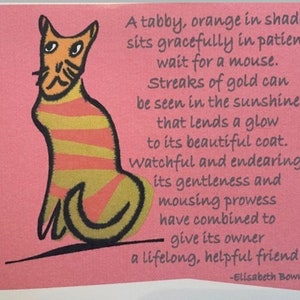 A tabby, orange in shad
sits gracefully in patien
wait for a mouse.
Streaks of gold can
be seen in the sunshine
that lends a glow
to its beautiful coat.
Watchful and endearing
its gentleness and
mousing prowess
have combined to
give its owner
a lifelong, helpful friend
-Elisabeth Bow